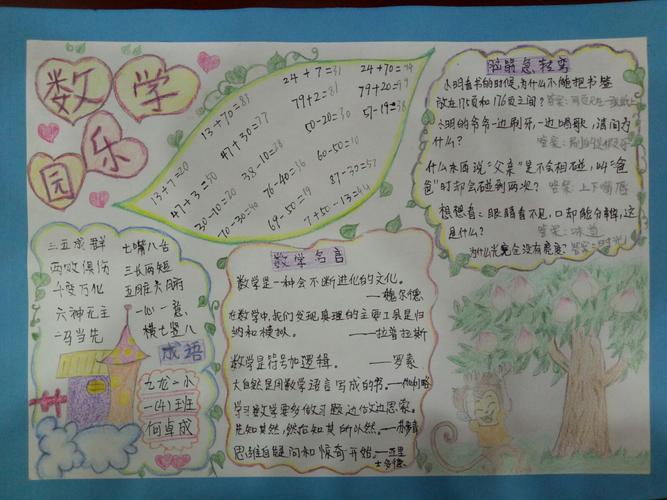 数学
乐
园
24+7=31
24+70=94
13+70=83
79+2=81
79+20=99
47+30=77
50-20=30
57-19=38
13+7=20
38-10=28
60-50=10
47+3=50
76-40=36
87-30=57
30-10=20
69-50=19
7+50-13=44
70-30=40
脑筋急转弯
小明看书的时候,为什么不能把书签
放在175页和176页之间?
小明的爷爷一边刷牙,一边唱歌,请问为
什么?
什么东西说“父亲”是不会相碰,叫“爸
爸”时却会碰到两次? 答案:上下嘴唇
想想看:眼睛看不见,口却能分辨,这
是什么? 答案:味道
三五成群 七嘴八舌
两败俱伤 三长两短
千变万化
六神无主 一心一意
一马当先 横七竖八
成语
九龙一小
一(4)班
何卓成
数学名言
数学是一种会不断进化的文化。
——魏尔德
在数学中,我们发现真理的主要工具是归
纳和模拟。 ——拉普拉斯
数学是符号加逻辑。 ——罗素
大自然是用数学语言写成的书。——伽利略
学习数学要多做习题,边做边思索。
先知其然,然后知其所以然。
思维自疑问和惊奇开始。——亚里
士多德